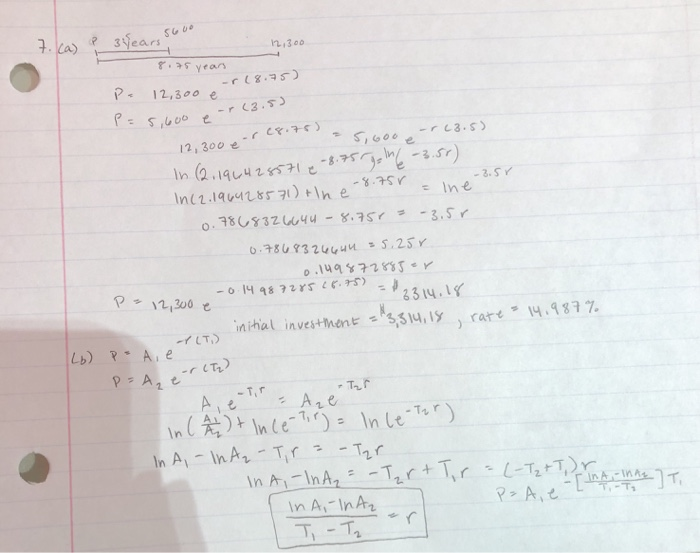 7. (a) P 3.5 years 5600 12,300
8.75 years
P = 12,300 e^-r(8.75)
P = 5,600 e^-r(3.5)
12,300 e^-r(8.75) = 5,600 e^-r(3.5)
ln(2.196428571 e^-8.75r) = ln(e^-3.5r)
ln(2.196428571) + ln e^-8.75r = ln e^-3.5r
0.7868326644 - 8.75r = -3.5r
0.7868326644 = 5.25r
0.149872885 = r
P = 12,300 e^-0.14987285(8.75) = $3314.18
initial investment = $3,314.18, rate = 14.987%
(b) P = A₁e^-r(T₁)
P = A₂e^-r(T₂)
A₁e^-T₁r = A₂e^-T₂r
ln(A₁/A₂) + ln(e^-T₁r) = ln(e^-T₂r)
ln A₁ - ln A₂ - T₁r = -T₂r
ln A₁ - ln A₂ = -T₂r + T₁r = (-T₂+T₁)r
(ln A₁ - ln A₂)/(T₁ - T₂) = r
P = A₁e^-[(ln A₁ - ln A₂)/(T₁ - T₂)]T₁